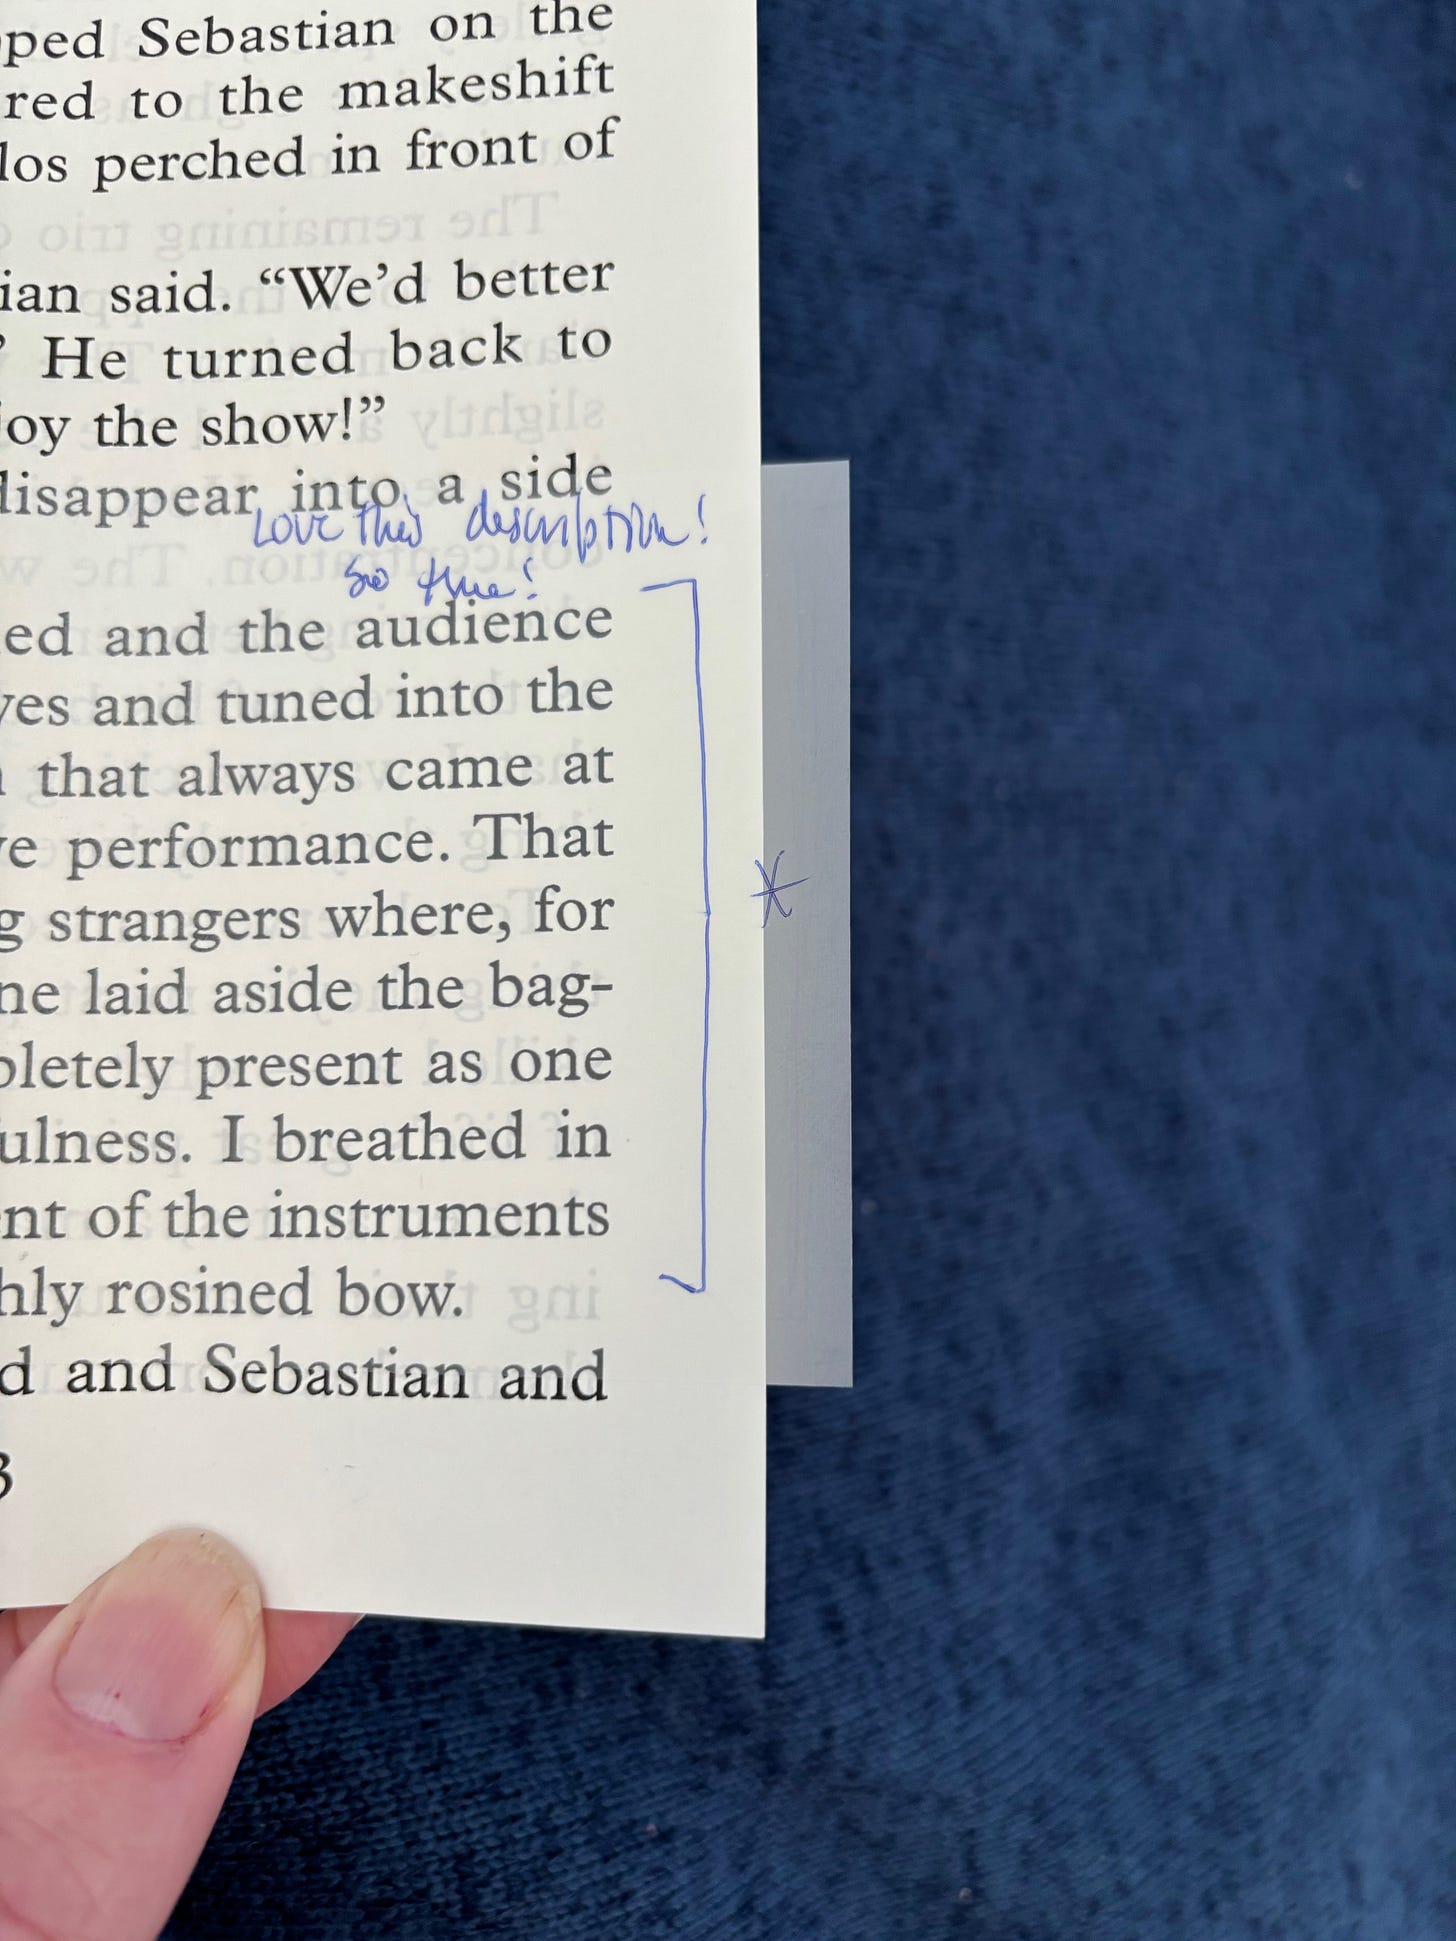 pped Sebastian on the
red to the makeshift
los perched in front of
ian said. “We’d better
” He turned back to
joy the show!”
disappear into a side
Love this description!
So true!
ed and the audience
yes and tuned into the
that always came at
e performance. That
g strangers where, for
ne laid aside the bag-
pletely present as one
ulness. I breathed in
nt of the instruments
hly rosined bow.
d and Sebastian and
3